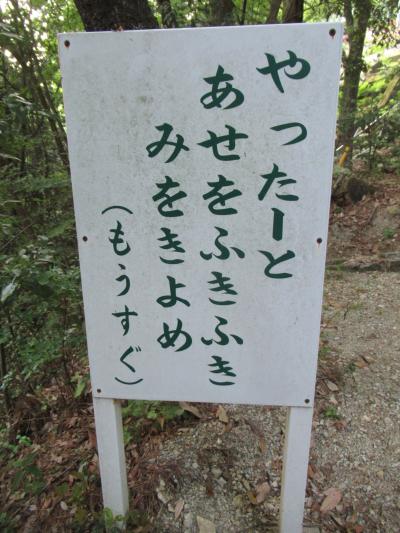 やったーと
あせをふきふき
みをきよめ
（もうすぐ）